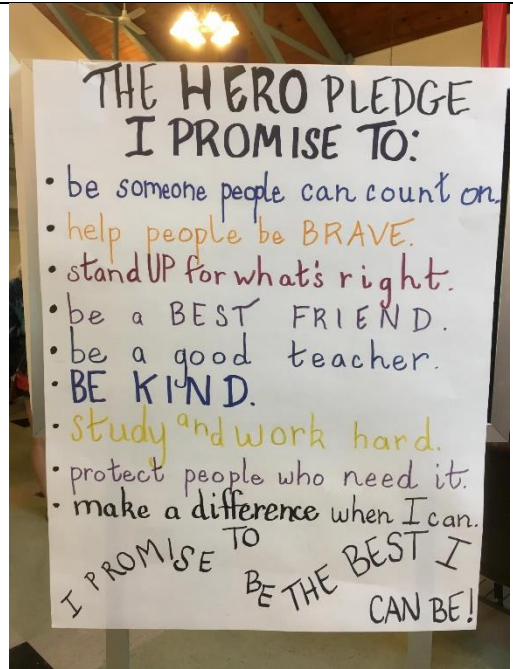 THE HERO PLEDGE
I PROMISE TO:
• be someone people can count on.
• help people be BRAVE.
• stand UP for what's right.
• be a BEST FRIEND.
• be a good teacher.
• BE KIND.
• study and work hard.
• protect people who need it.
• make a difference when I can.
I PROMISE TO
BE THE BEST I
CAN BE!